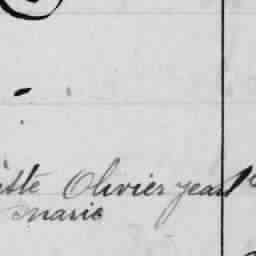 Olivier jean
marie